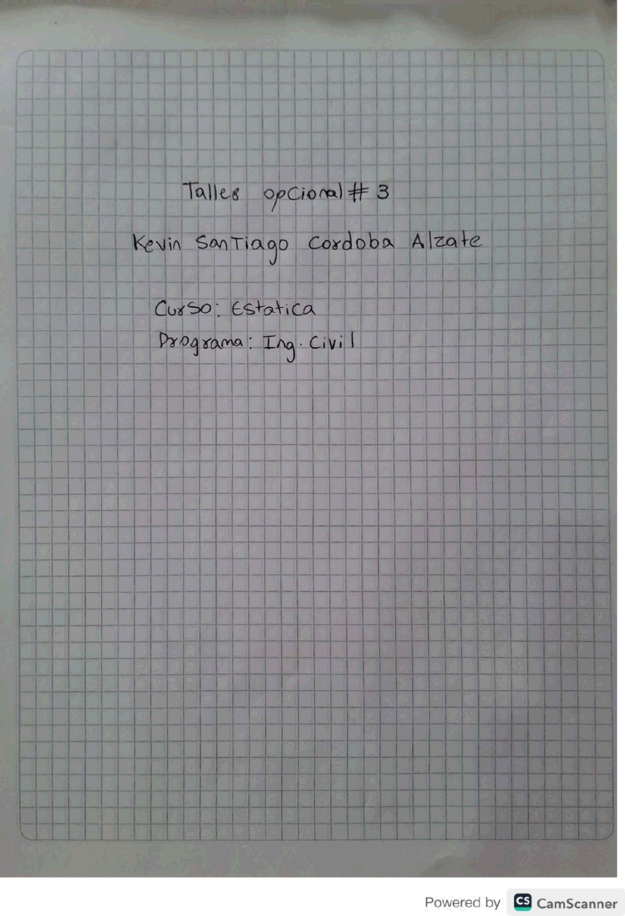 Taller opcional # 3
Kevin SanTiago Cordoba Alzate
Curso: Estatica
Programa: Ing. Civil
Powered by CS CamScanner